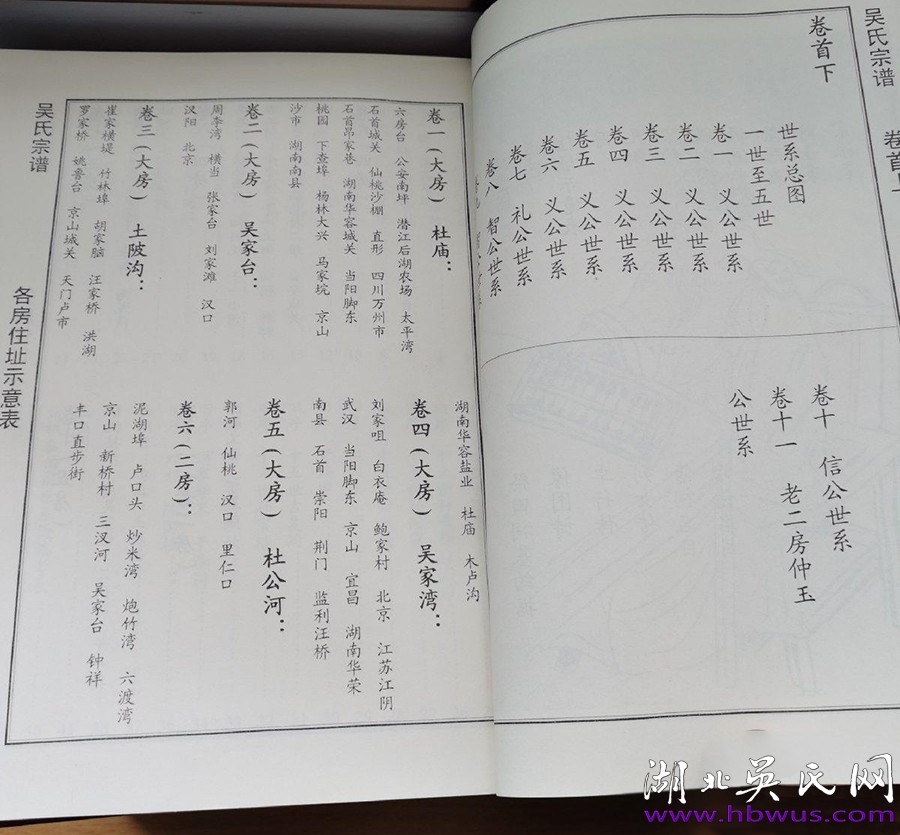 吴氏宗谱
卷首上
卷首下
世系总图
一世至五世
卷一 义公世系
卷二 义公世系
卷三 义公世系
卷四 义公世系
卷五 义公世系
卷六 义公世系
卷七 礼公世系
卷八 智公世系
卷十 信公世系
卷十一 老二房仲玉
公世系
卷一(大房) 杜庙：
六房台 公安南坪 潜江后湖农场 太平湾
石首城关 仙桃沙棚 直形 四川万州市
石首昂家巷 湖南华容城关 当阳脚东
桃园 下查埠 杨林大兴 马家垸 京山
沙市 湖南南县
卷二(大房) 吴家台：
周李湾 横当 张家台 刘家滩 汉口
汉阳 北京
卷三(大房) 土陂沟：
崔家横堤 竹林埠 胡家脑 汪家桥 洪湖
罗家桥 姚鲁台 京山城关 天门卢市
湖南华容盐业 杜庙 木卢沟
卷四(大房) 吴家湾：
刘家咀 白衣庵 鲍家村 北京 江苏江阴
武汉 当阳脚东 京山 宜昌 湖南华荣
南县 石首 崇阳 荆门 监利汪桥
卷五(大房) 杜公河：
郭河 仙桃 汉口 里仁口
卷六(二房)：
泥湖埠 卢口头 炒米湾 炮竹湾 六渡湾
京山 新桥村 三汊河 吴家台 钟祥
丰口直步街
吴氏宗谱
各房住址示意表
湖北吴氏网
www.hbwus.com